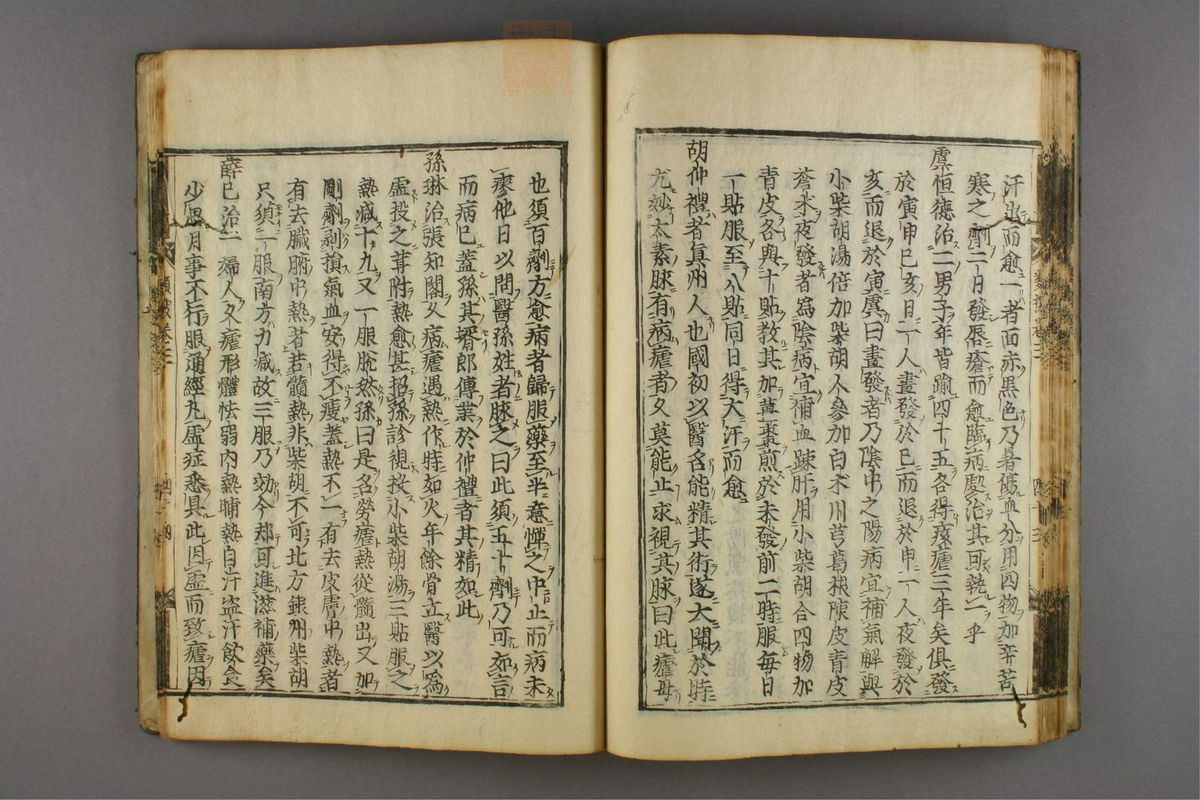 汗出而愈一者面赤黒色乃暑傷血分用四物加辛苦
寒之劑二日發唇瘡而愈臨病處治其可執一乎
虞恒德治二男子年皆踰四十五各得痎瘧三年矣俱發
於寅申巳亥日一人晝發於巳而退於申一人夜發於
亥而退於寅虞曰晝發者乃陰中之陽病宜補氣解與
小柴胡湯倍加柴胡人參加白术川芎葛根陳皮青皮
蒼术夜發者爲陰病宜補血踈肝用小柴胡合四物加
青皮各與十貼教其加薑棗煎於未發前二時服毎日
一貼服至八貼同日得大汗而愈
胡仲禮者眞州人也國初以醫名能精其術遂大聞於時
尤妙太素脉有病瘧者久莫能止求視其脉曰此瘧毋
也須百劑方愈病者歸服藥至半意憚之中止而病未
瘳他日以問醫孫姓者脉之曰此須五十劑乃可如言
而病已蓋孫其壻郎傳業於仲禮者其精如此
孫琳治張知閣久病瘧遇熱作時如火年餘骨立醫以爲
虛投之茸附熱愈甚招孫診視投小柴胡湯三貼服之
熱減十九又一服脫然孫曰是名勞瘧熱從髓出又加
剛劑剥損氣血安得不瘦蓋熱不一有去皮膚中熱者
有去臟腑中熱者若髓熱非柴胡不可北方銀州柴胡
只須一服南方力減故三服乃効今却可進滋補藥矣
薛已治一婦人久瘧形體怯弱内熱晡熱自汗盗汗飲食
少思月事不行服通經丸虛症悉具此因虛而致瘧因